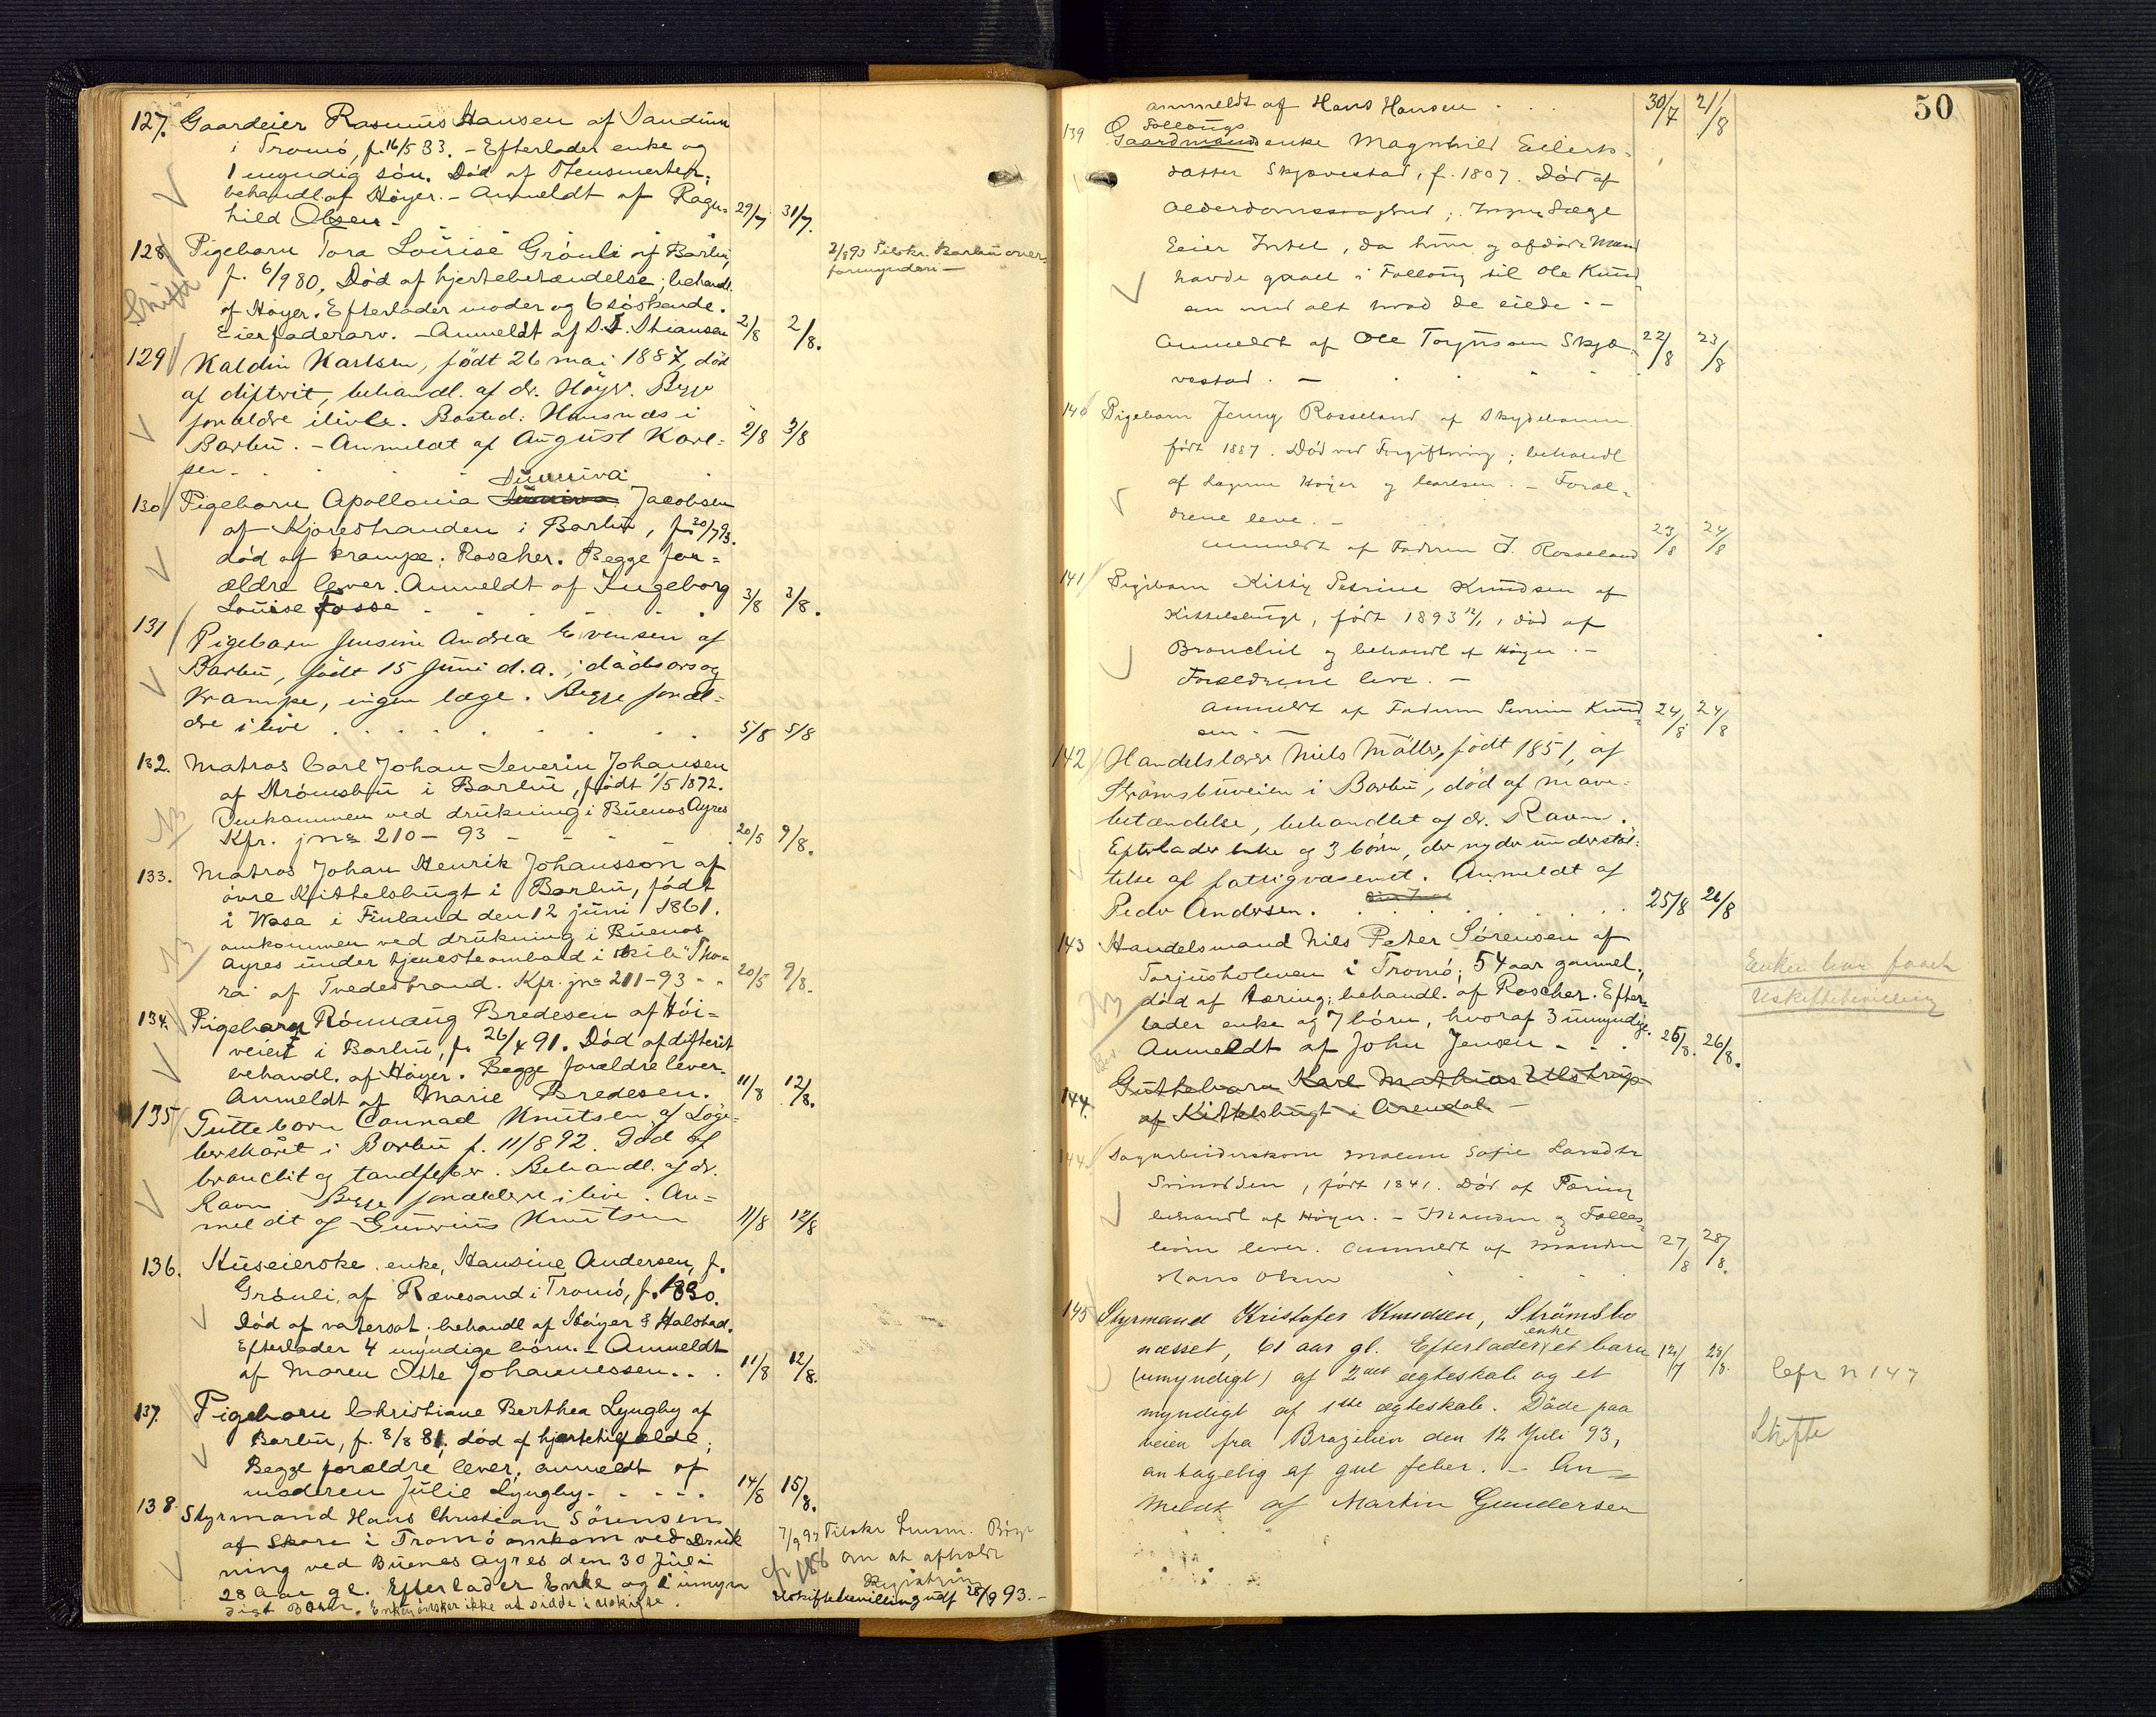 127. Gaardeier Rasmus Hansen af Sandum
i Tromö, f. 16/5 33. - Efterlader enke og
1 myndig sön. Död af
behandl. af Höyer. - Anmeldt af Ragn-
hild Olsen - 29/7 31/7.
128 Pigebarn Tora Louise Grönli af Barbu,
f. 6/9 80. Död af hjertebetændelse; behandl.
af Höyer. Efterlader moder og 6 söskende.
Eier faderarv. - Anmeldt af S. T. Stiansen 2/8 2/8.
Skifte
2/8 93 Tilskr. Barbu over-
formynderi -
129 Kaldin Karlsen, född 26 mai 1887, död
af difterit, behandl. af dr. Höyer. Begge
forældre ilive. Bosted: Hansnæs i
Barbu. - Anmeldt af August Karl= 2/8 3/8
sen -
130 Pigebarn Apollonia Sunniva Jacobsen
af Kjorestranden i Barbu, f. 20/7 93.
död af krampe; Roscher. Begge for=
ældre lever. Anmeldt af Ingeborg
Louise Fosse 3/8 3/8.
131 Pigebarn Jensine Andrea Evensen af
Barbu, födt 15 Juni d.a.; dödsarsag
Krampe, ingen læge. Begge foræl=
dre i live 5/8 5/8
132. Matros Carl Johan Severin Johansen
af Strömsbu i Barbu, födt 1/5 1872.
Omkommen ved drukning i Buenos Ayres
Kfr. jno 210 - 93 - 20/5 9/8.
133. Matros Johan Henrik Johansson af
övre Kittelsbugt i Barbu, födt
i Wasa i Finland den 12 juni 1861.
omkommen ved drukning i Buenos
Ayres under tjeneste ombord i skib "Tho-
ra" af Tvedestrand. Kfr. jno 211-93 - 20/5 9/8.
134. Pigebarn Rönnaug Bredesen af Höi=
veiet i Barbu, f. 26/4 91. Död af difterit
behandl. af Höyer. Begge forældre lever.
Anmeldt af Marie Bredesen. 11/8 12/8.
135 Guttebarn Conrad Knutsen af Löge-
berskåret i Barbu f. 11/8 92. Död af
bronchit og tandfeber. Behandl. af dr.
Ravn Begge forældrene i live. An=
meldt af Gunvius Knutsen 11/8 12/8
136. Huseierske, enke, Hansine Andersen, f.
Grönli, af Rævesand i Tromö, f. 1830.
Död af vatersot. behandl af Höyer & Halstad.
Efterlader 4 myndige börn. - Anmeldt
af Maren Otte Johannessen. . 11/8 12/8.
137. Pigebarn Christiane Berthea Lyngby af
Barbu, f. 8/8 81, död af hjertetilfælde;
Begge forældre lever; anmeldt af
moderen Julie Lyngby - 14/8 15/8.
138 Styrmand Hans Christian Sörensen
af Skare i Tromö omkom ved Druk
ning ved Buenos Ayres den 30 Juli
28 Aar gl. Efterlader Enke og 1 umyn
digt Barn. Enken önsker ikke at sidde i uskifte.
7/9 93 Tilskr Lensm. Börge
om at afholde
Registrering
cfr 188
Uskiftebevilling udf 28/9 93. -
50
anmeldt af Hans Hansen 30/7 21/8
139 Follougs
Gaardmands enke Magnhild Eilerts-
datter Skjævestad, f. 1807. Död af
Alderdomssvaghed; Ingen Læge
Eier Intet, da hun og afdöde Mand
havde gaaet i Follaug til Ole Knud
sen med alt hvad de eiede. -
Anmeldt af Ole Torjussen Skjæ- 22/8 23/8
vestad. -
140 Pigebarn Jenny Rosseland af Skydebanen
födt 1887. Död ved Forgiftning; behandl
af Lægerne Höyer og Carlsen. - Foræl-
drene leve. -
anmeldt af Faderen J. Rosseland 23/8 24/8
141 Pigebarn Kitty Petrine Knudsen af
Kittelsbugt, födt 1893 12/1, död af
Bronchit og behandl af Höyer. -
Forældrene leve. -
anmeldt af Faderen Knud 24/8 24/8
sen. -
142 Handelslærer Niels Möller, födt 1851, af
Strömsbuveien i Barbu, död af mave-
betændelse, behandlet af dr. Ravn.
Efterlader enke og 3 börn, der nyder understöt-
telse af fattigvæsenet. Anmeldt af
Peder Andersen. 25/8 26/8
143 Handelsmand Nils Peter Sörensen af
Torjusholmen i Tromö; 54 aar gammel,
död af tæring; behandl. af Roscher. Efter-
lader enke og 7 börn, hvoraf 3 umyndige.
Anmeldt af John Jensen - 26/8. 26/8.
Enken har faaet
Uskiftebevilling
144. Guttebarn Karl Mathias Ulstrup
af Kittelsbugt i Arendal. -
144. Dagarbeiderskone Malene Sofie Larsdtr
Svinodden, födt 1841. Död af Tæring
behandl af Höyer. - Manden og Fælles-
börn lever. Anmeldt af Manden 27/8 28/8.
Hans Olsen
145 Styrmand Kristofer Knudsen, Strömsbo
næsset, 61 aar gl. Efterlader enke, et barn 12/7 28/8.
(umyndigt) af 2det ægteskab og et
myndigt af 1ste ægteskab. Döde paa
veien fra Brazilien den 12 Juli 93,
antagelig af gul feber. - An=
meldt af Martin Gundersen
Cfr n 147
Skifte